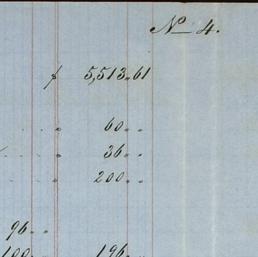 No 4.
$ 5,513.61
" 60..
" 36..
" 200..
96..
100.. 196..